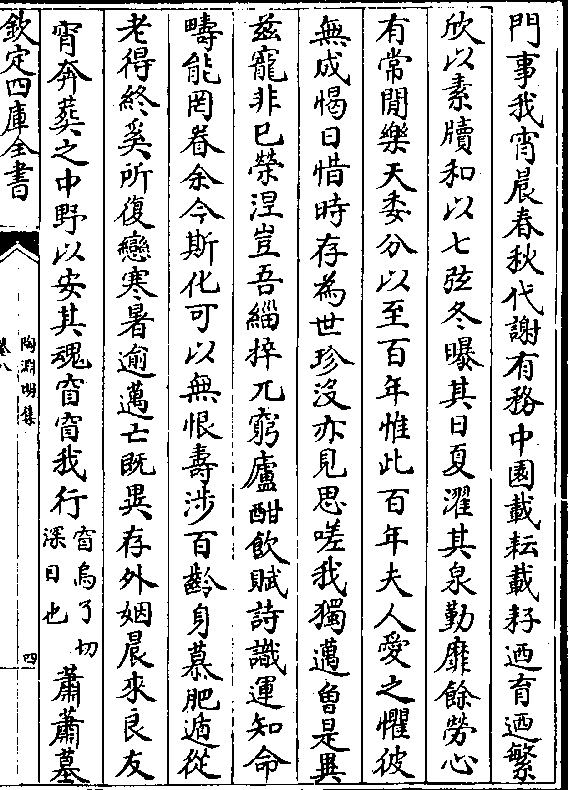 門事我宵晨春秋代謝有務中園載耘載耔迺育迺繁
欣以素牘和以七弦冬曝其日夏濯其泉勤靡餘勞心
有常閒樂天委分以至百年惟此百年夫人愛之懼彼
無成愒日惜時存為世珍沒亦見思嗟我獨邁曾是異
茲寵非已榮涅豈吾緇捽兀窮廬酣飲賦詩識運知命
疇能罔眷余今斯化可以無恨壽涉百齡身慕肥遁從
老得終奚所復戀寒暑逾邁亡既異存外姻晨來良友
宵奔葬之中野以安其魂窅窅我行窅烏了切深目也蕭蕭墓
欽定四庫全書
陶淵明集
卷八
四